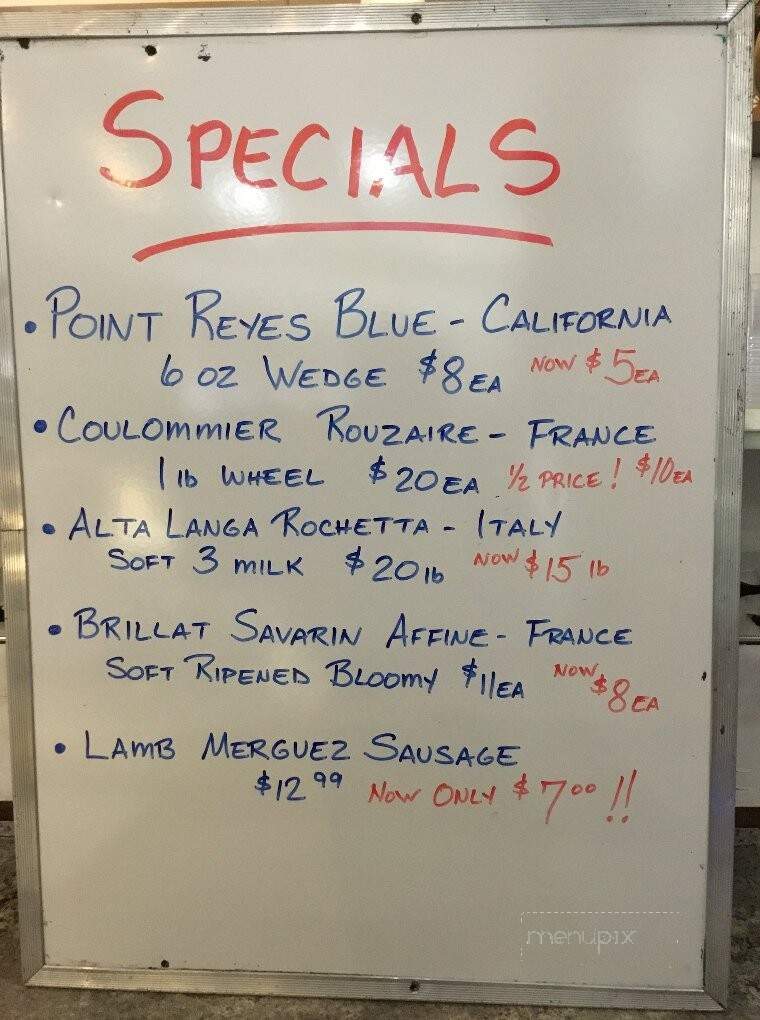 SPECIALS
• POINT REYES BLUE - CALIFORNIA
6 OZ WEDGE $8 EA NOW $5 EA
• COULOMMIER ROUZAIRE - FRANCE
1 lb WHEEL $20 EA 1/2 PRICE! $10 EA
• ALTA LANGA ROCHETTA - ITALY
SOFT 3 MILK $20 lb NOW $15 lb
• BRILLAT SAVARIN AFFINE - FRANCE
SOFT RIPENED BLOOMY $11 EA NOW $8 EA
• LAMB MERGUEZ SAUSAGE
$12 99 NOW ONLY $7 00 !!
menupix